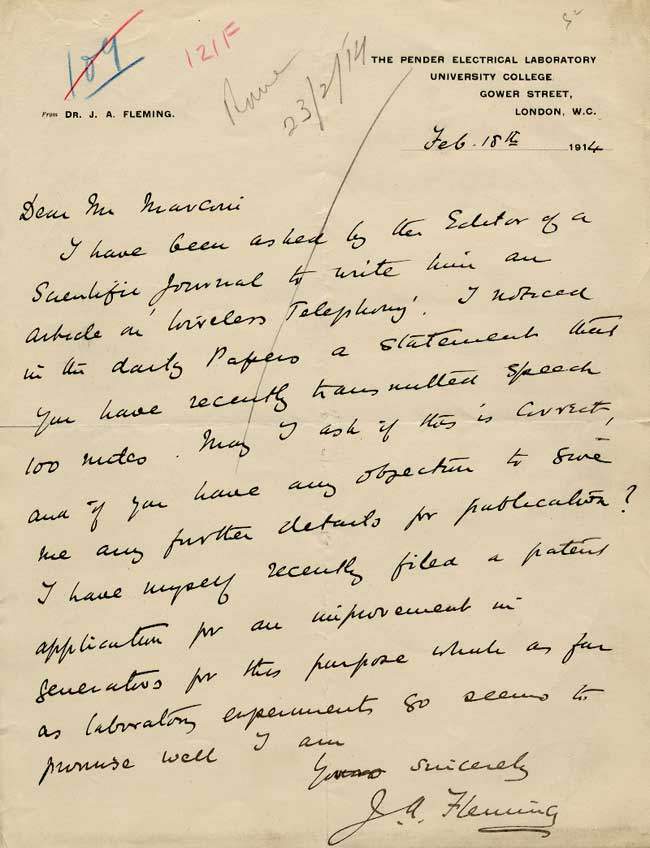 109
121F
Rome
23/2/14
THE PENDER ELECTRICAL LABORATORY
UNIVERSITY COLLEGE
GOWER STREET,
LONDON, W.C.
From DR. J. A. FLEMING.
Feb. 18th 1914
Dear Mr Marconi
I have been asked by the Editor of a
Scientific Journal to write him an
article on 'Wireless Telephony'. I noticed
in the daily Papers a statement that
you have recently transmitted speech
100 miles. May I ask if this is correct,
and if you have any objection to give
me any further details for publication?
I have myself recently filed a patent
application for an improvement in
generators for this purpose which as far
as laboratory experiments go seems to
promise well I am
Yours sincerely
J. A. Fleming